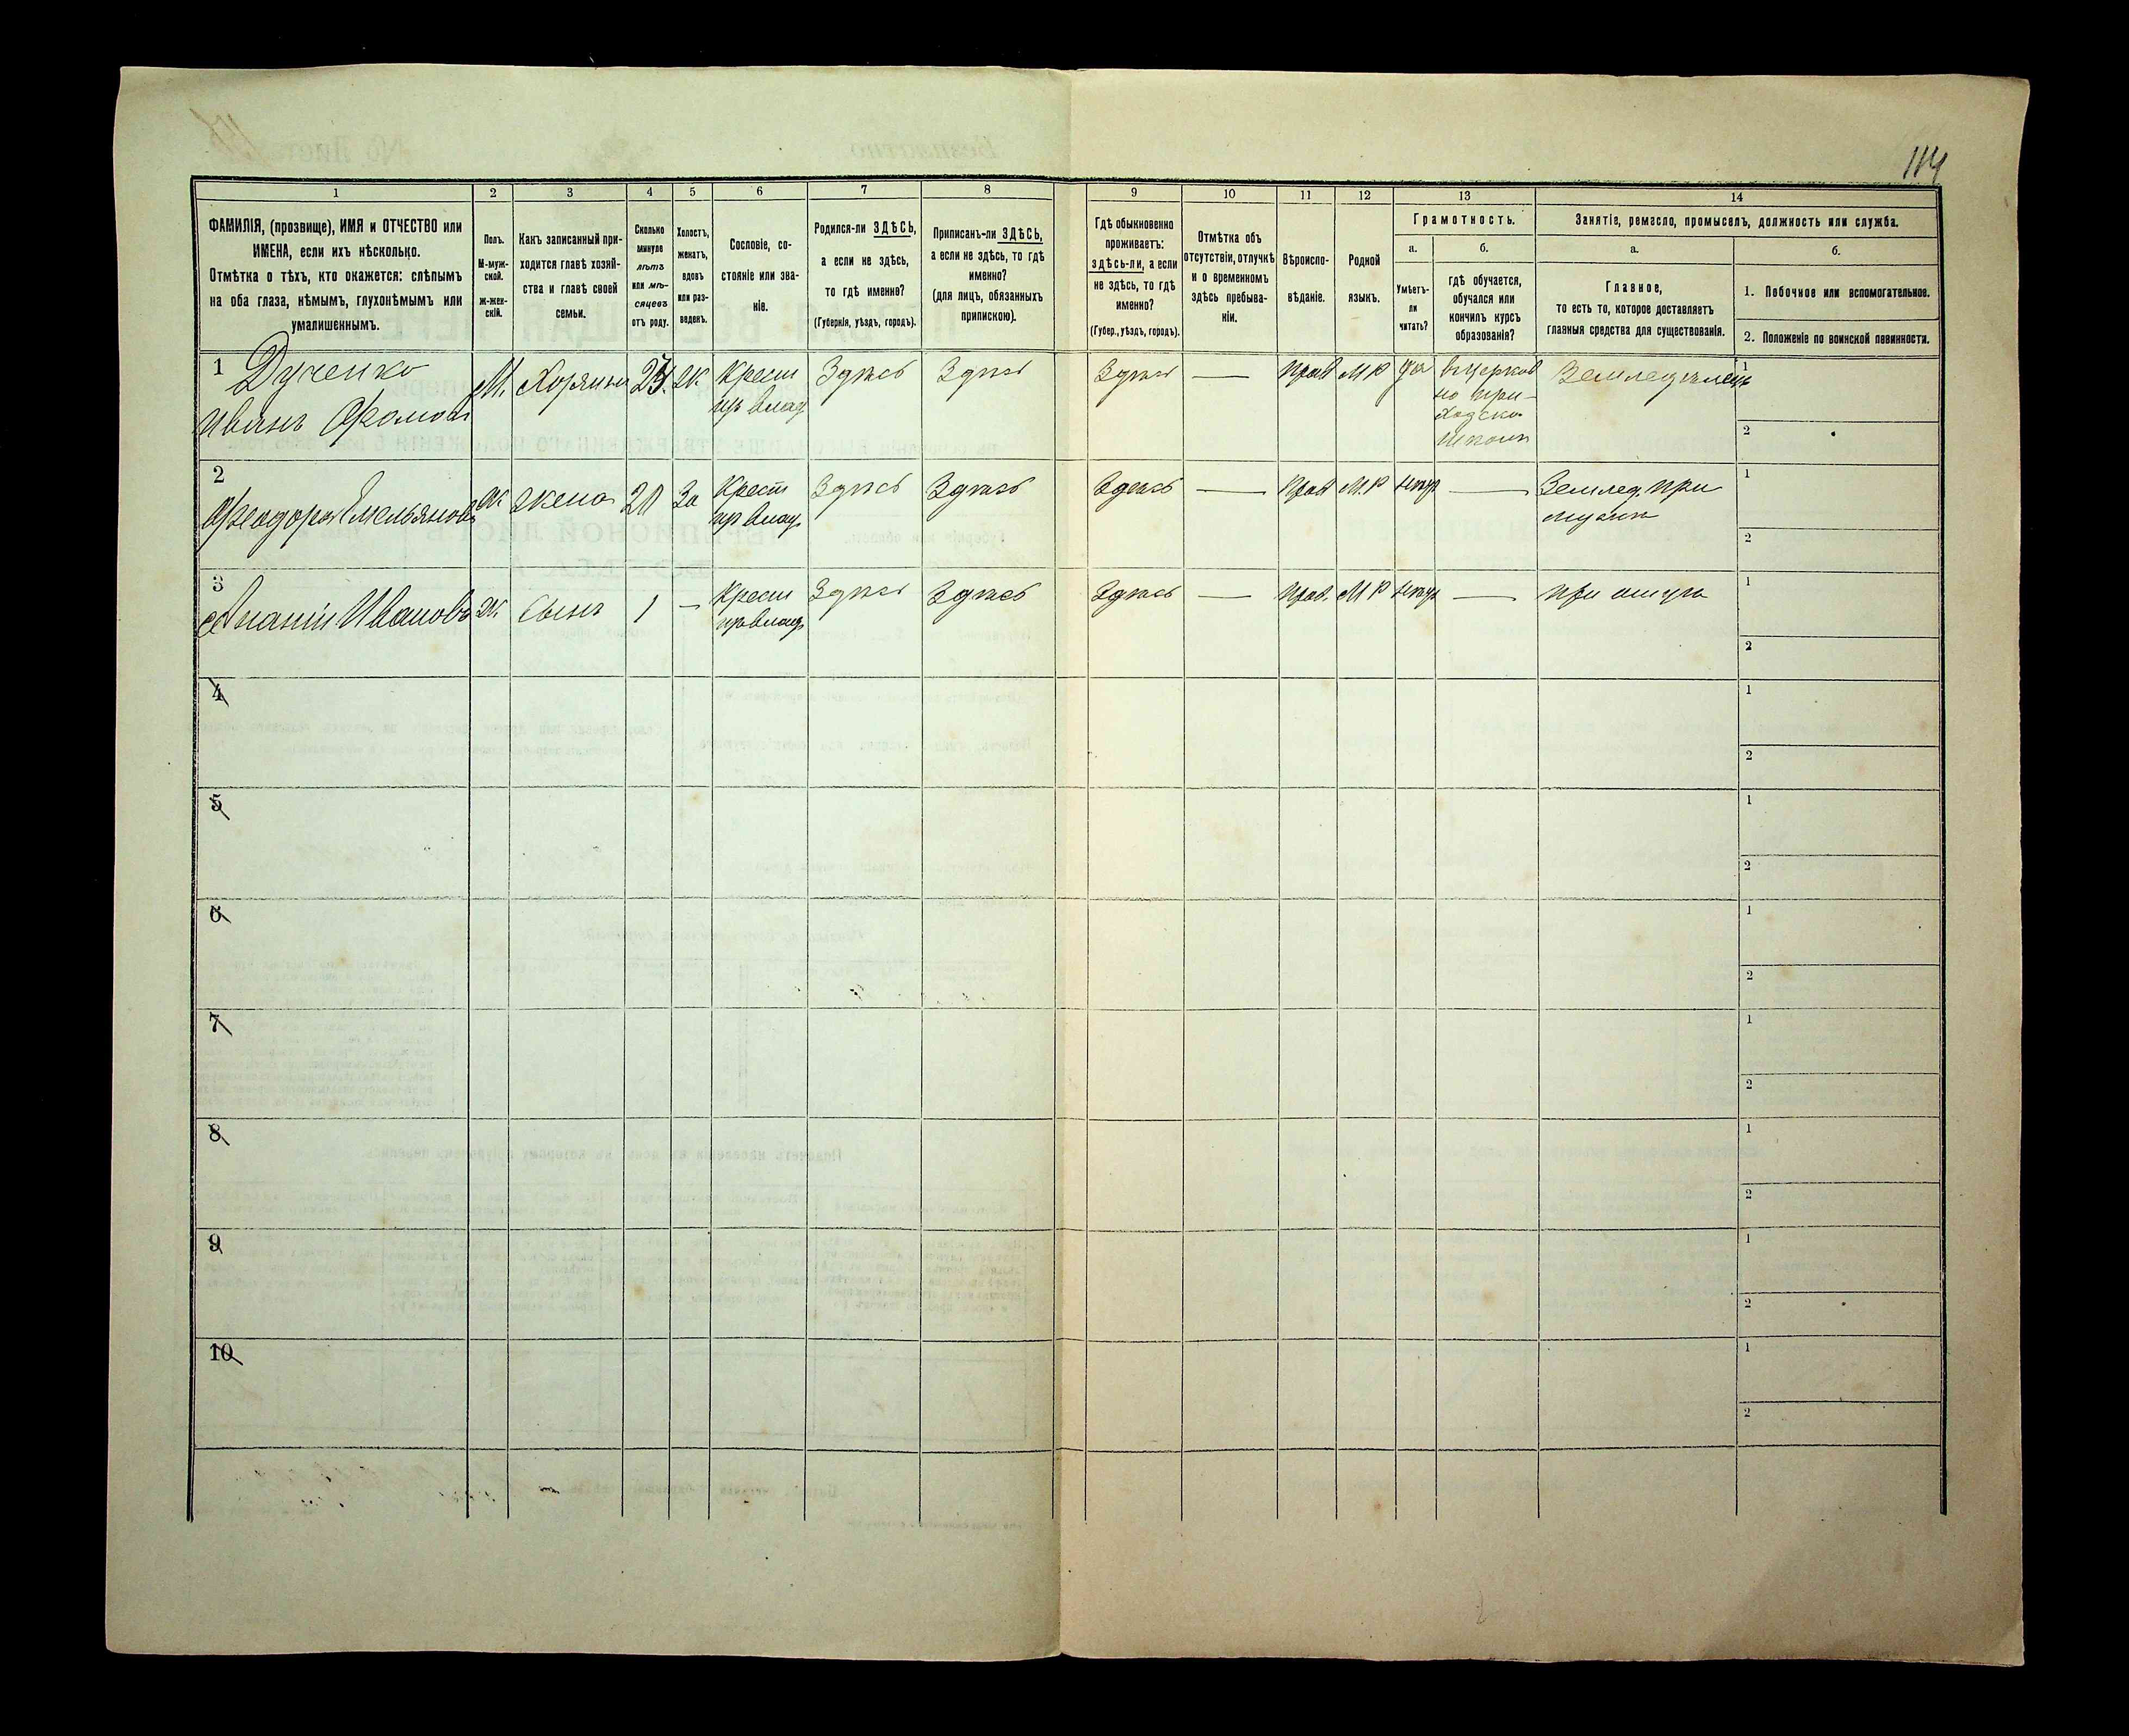 114
1 2 3 4 5 6 7 8 9 10 11 12 13 14
ФАМИЛІЯ, (прозвище), ИМЯ и ОТЧЕСТВО или
ИМЕНА, если ихъ нѣсколько.
Отмѣтка о тѣхъ, кто окажется: слѣпымъ
на оба глаза, нѣмымъ, глухонѣмымъ или
умалишеннымъ.
Полъ.
М-муж-
ской.
Ж-жен-
скій.
Какъ записанный при-
ходится главѣ хозяй-
ства и главѣ своей
семьи.
Сколько
минуло
лѣтъ
или мѣ-
сяцевъ
отъ роду.
Холостъ,
женатъ,
вдовъ
или раз-
веденъ.
Сословіе, со-
стояніе или зва-
ніе.
Родился-ли ЗДѢСЬ,
а если не здѣсь,
то гдѣ именно?
(Губернія, уѣздъ, городъ).
Приписанъ-ли ЗДѢСЬ,
а если не здѣсь, то гдѣ
именно?
(для лицъ, обязанныхъ
припискою).
Гдѣ обыкновенно
проживаетъ:
здѣсь-ли, а если
не здѣсь, то гдѣ
именно?
(Губер., уѣздъ, городъ).
Отмѣтка объ
отсутствіи, отлучкѣ
и о временномъ
здѣсь пребыва-
ніи.
Вѣроиспо-
вѣданіе.
Родной
языкъ.
Грамотность.
а.
Умѣетъ-
ли
читать?
б.
гдѣ обучается,
обучался или
кончилъ курсъ
образованія?
Занятіе, ремесло, промыселъ, должность или служба.
а.
Главное,
то есть то, которое доставляетъ
главныя средства для существованія.
б.
1. Побочное или вспомогательное.
2. Положеніе по воинской повинности.
1 Дученко
Иванъ Фомовъ
М. Хозяинъ 24 Ж Крест
Здѣсь Здѣсь Здѣсь — Прав М Р да
вцерков
но при-
ходско
школѣ
Земледѣлецъ
1
2
2
Феодора Емельянова
Ж Жена 20 За Крест
Здѣсь Здѣсь Здѣсь — Прав М.Р нетъ — Землед при
мужѣ
1
2
3
Ананій Ивановъ Ж. Сынъ 1 — Крест
Здѣсь Здѣсь Здѣсь — Прав. М Р нетъ — при отцѣ
1
2
4
1
2
5
1
2
6
1
2
7
1
2
8
1
2
9
1
2
10
1
2